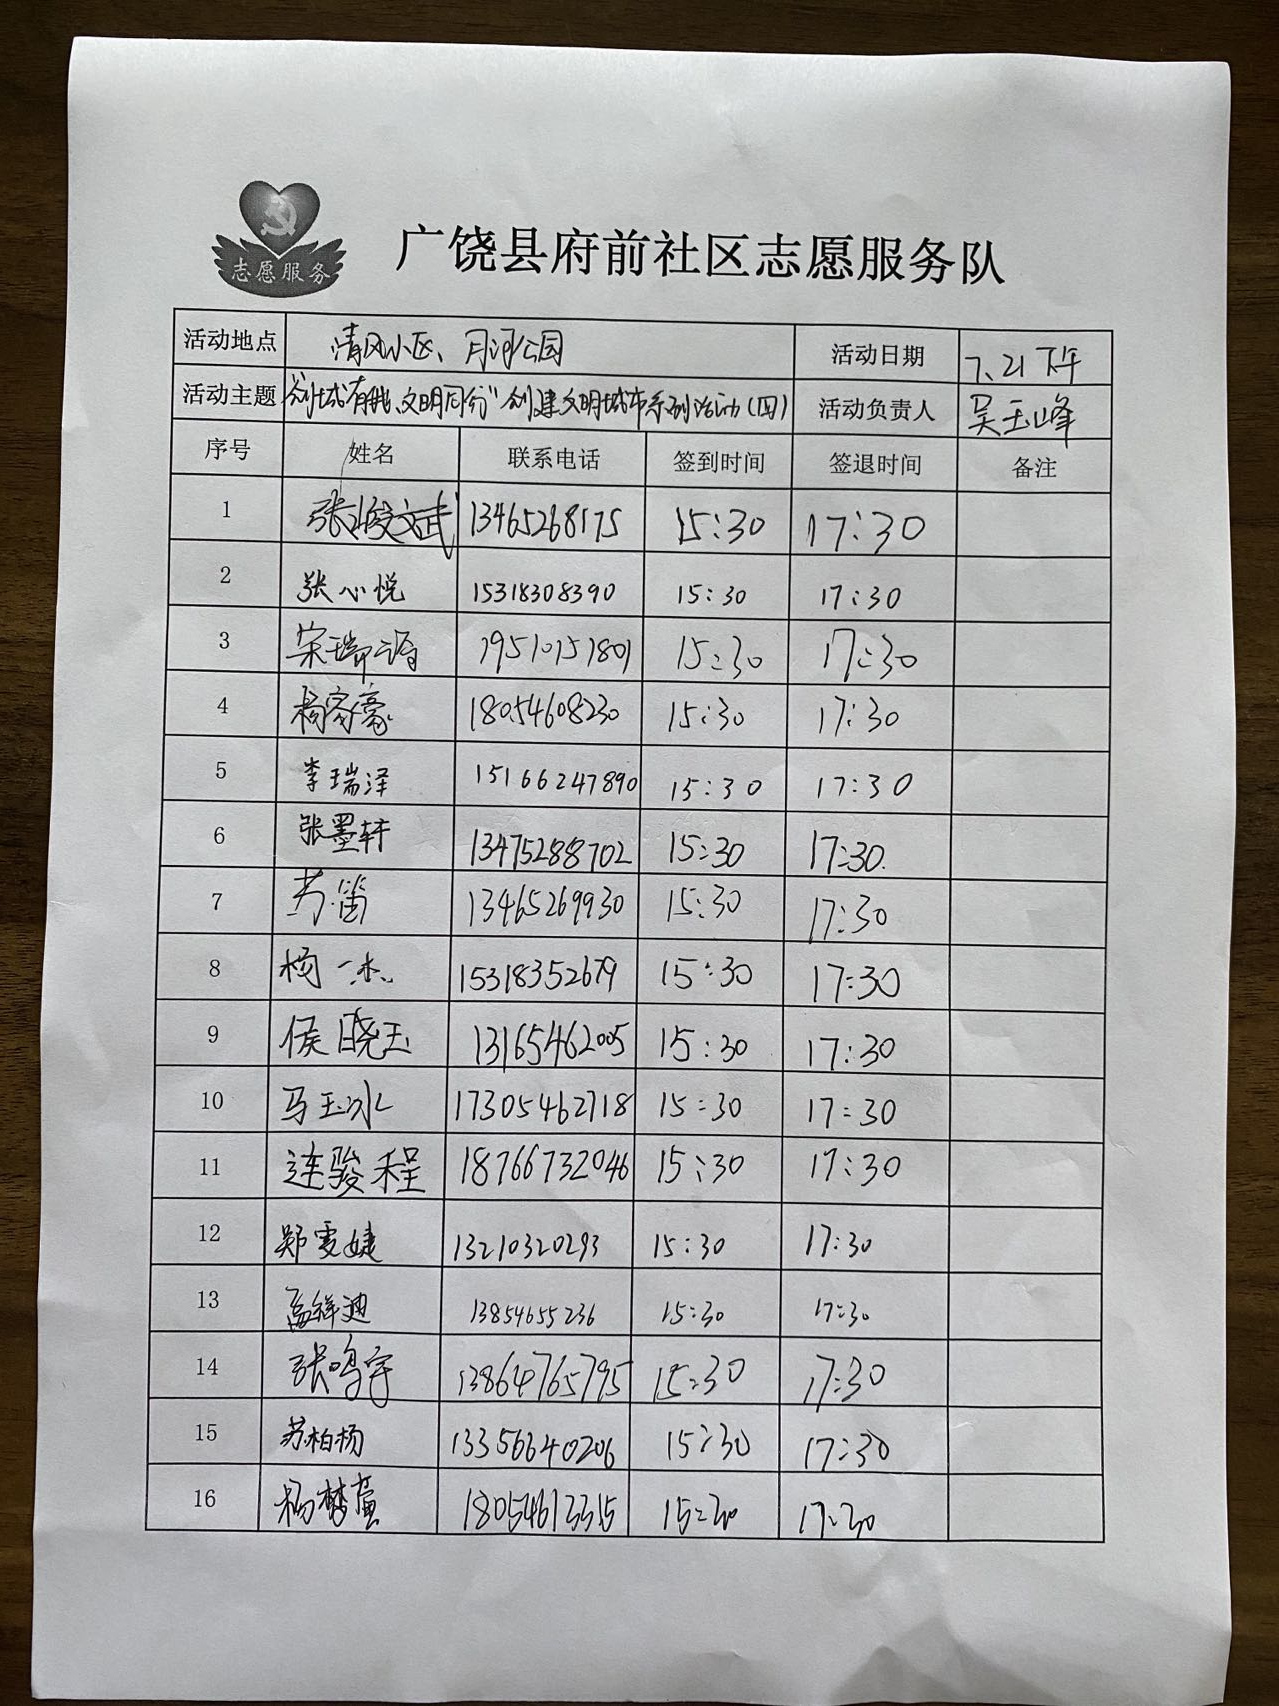 志愿服务
广饶县府前社区志愿服务队
活动地点 清风小区、月河公园 活动日期 7.21下午
活动主题 创城有我、文明同行"创建文明城市系列活动(四) 活动负责人 吴玉峰
序号 姓名 联系电话 签到时间 签退时间 备注
1 张峻文武 13465268175 15:30 17:30
2 张心悦 15318308390 15:30 17:30
3 宋瑞 19510151801 15:30 17:30
4 杨家豪 18054608230 15:30 17:30
5 李瑞泽 15166247890 15:30 17:30
6 张墨轩 13475288702 15:30 17:30
7 13465269930 15:30 17:30
8 杨一杰 15318352679 15:30 17:30
9 侯晓玉 13165462005 15:30 17:30
10 马玉冰 17305462718 15:30 17:30
11 连骏程 18766732046 15:30 17:30
12 郑雯婕 13210320293 15:30 17:30
13 孟祥迪 13854655236 15:30 17:30
14 张鸣宇 13864765795 15:30 17:30
15 苏柏杨 13356640206 15:30 17:30
16 杨梦 18054613315 15:30 17:30